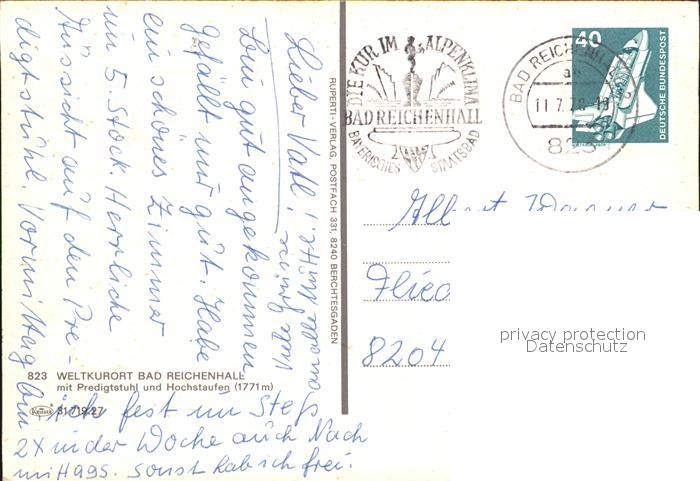 Lieber Vatl!
Bin gut angekommen
gefällt mir gut. Habe
ein schönes Zimmer
im 5. Stock. Herrliche
Aussicht auf den Pre-
digtstuhl. Vormittag bin
ich fest im Steps
2x in der Woche auch Nach
mittags. sonst hab ich frei.
RUPERTI-VERLAG, POSTFACH 331, 8240 BERCHTESGADEN
823 WELTKURORT BAD REICHENHALL
mit Predigtstuhl und Hochstaufen (1771 m)
31/719 27
DIE KUR IM ALPENKLIMA
BAD REICHENHALL
BAYERISCHES STAATSBAD
BAD REICHENHALL
11.7.78-19
823
40
DEUTSCHE BUNDESPOST
Albert
Flied
8204
privacy protection
Datenschutz